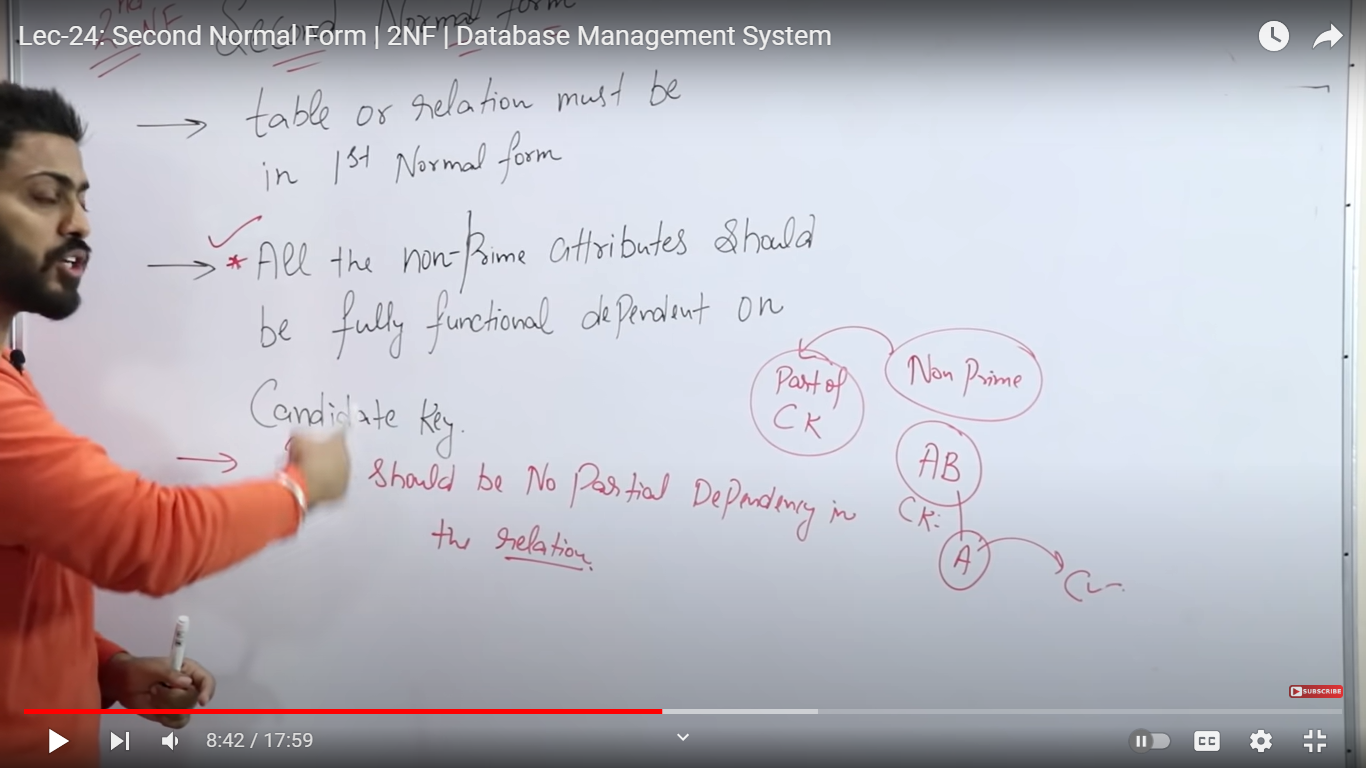 2nd NF Second Normal form
Lec-24: Second Normal Form | 2NF | Database Management System
→ table or relation must be
in 1st Normal form
→ * All the non-Prime attributes should
be fully functional dependent on
Candidate Key.
→ should be No Partial Dependency in
the relation.
Part of
CK
Non Prime
AB
CK:
A
C
SUBSCRIBE
8:42 / 17:59
CC